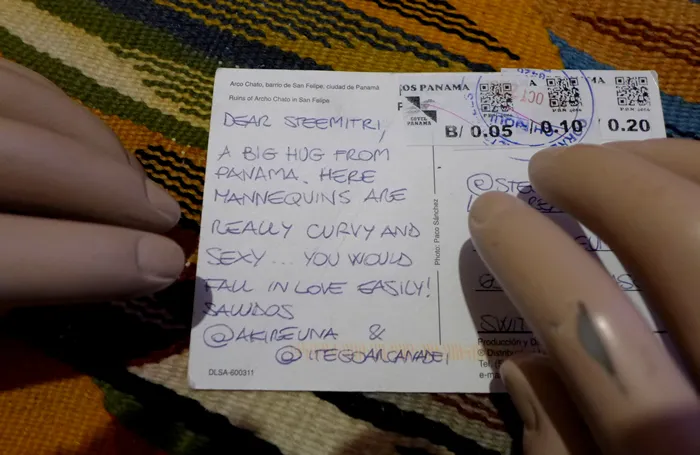 Arco Chato, barrio de San Felipe, ciudad de Panamá
Ruins of Archo Chato in San Felipe
DEAR STEEMITRI,
A BIG HUG FROM
PANAMA. HERE
MANNEQUINS ARE
REALLY CURVY AND
SEXY... YOU WOULD
FALL IN LOVE EASILY!
SALUDOS
@AKIREUNA &
@ITEGOARCANADEI
DLSA-600311
Photo: Paco Sánchez
OS PANAMA
MA
COTEL
PANAMA
B/ 0.05
0.10
0.20
OCT
SWIT
Producción y D
© Distrib
Tel. (
e-ma